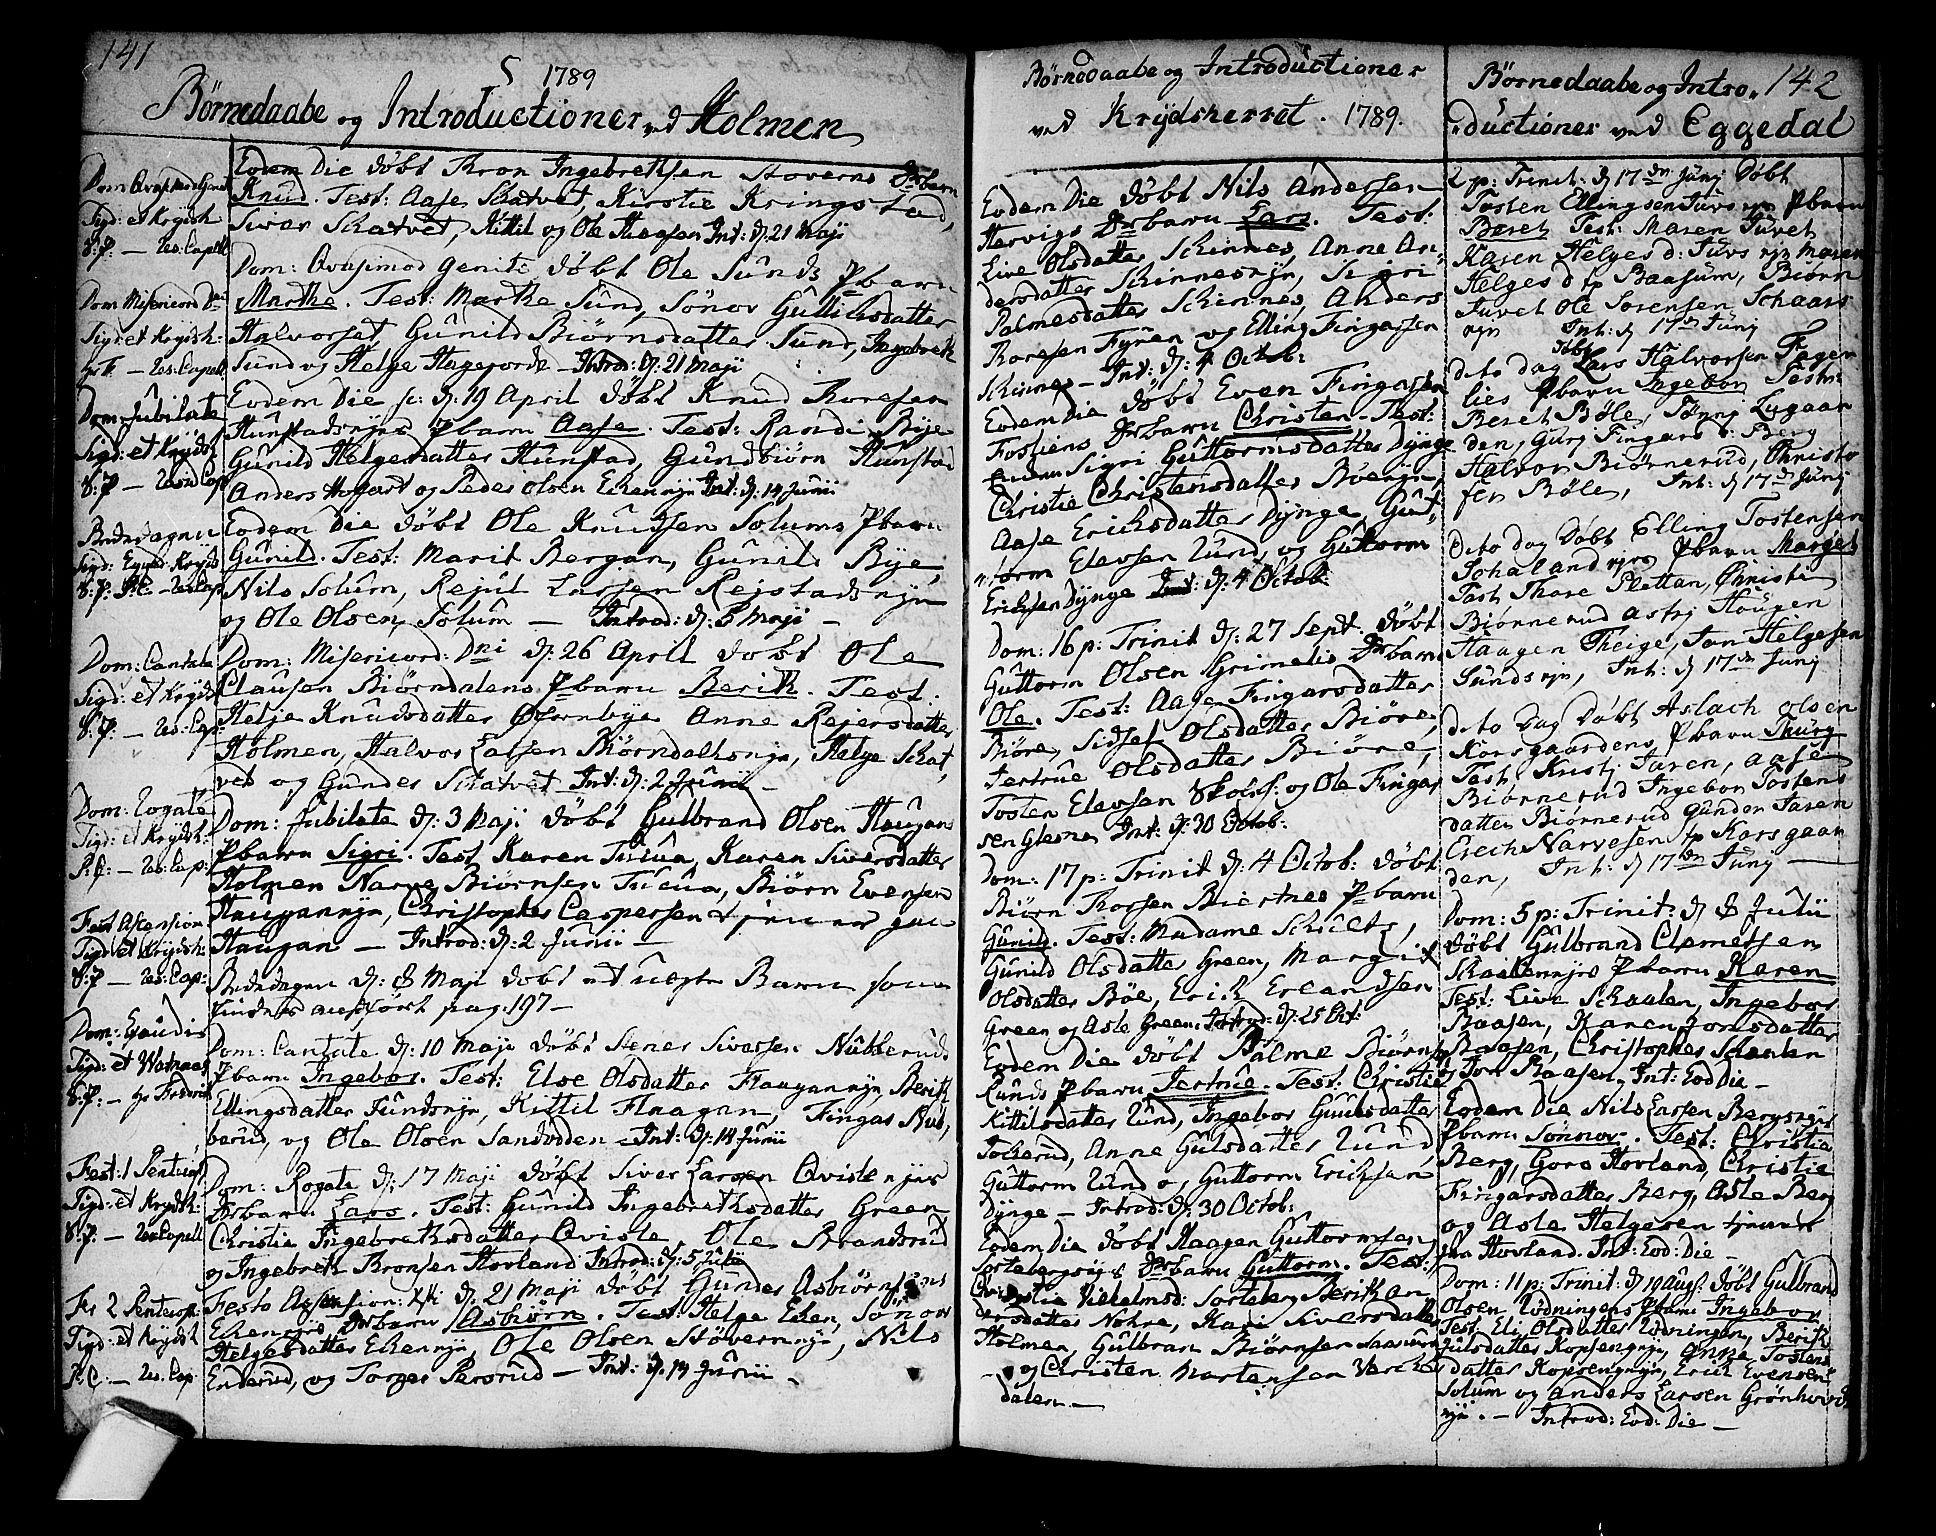 141
1789
Børnedaabe og Introductioner ved Holmen
Dom Qvasimod Genit
Sigd: et Krydsh
S:P: — Res: Capell
Dom Misericord Dni
Sigd et Krydsh:
— Res: Capell
Dom: Jubilate
Sigd: et Krydsh
S:P: — Resd Cap
Bededagen
Sigd: Egged: Kryds
S:P: P:C: — Res Cap
Dom: Cantate
Sigd: et Krydsh
S:P: — Res: Cap:
Dom: Rogate
Sigd: et Krydsh:
P:C: — Res: Cap:
Fest Ascension
Sigd et Krydsh:
S:P — Res: Cap:
Dom: Exaudi
Sigd: et
S:P: — hr Fredrich
Fest: 1 Pentecost
Sigd: et Krydsh:
S:P: — Res: Capell
Fer 2 Pentecost
Sigd: et Krydsh
P:C: — Res: Cap
Eodem Die døbt Thron Ingebretsen Stoverns Drbarn
Knud. Test: Aase Skatvet, Kirstie Kringstad,
Siver Skatvet, Kittil og Ole Haagsen Int: d: 21 Maji
Dom: Qvasimod Geniti døbt Ole Sunds Pbarn
Marthe. Test: Marthe Sund, Sønov Guttichsdatter
Halvorset, Gunild Biørnsdatter Sund, Ingebreth
Sund og Helge Hageporde — Introd: d: 21 Maji
Eodem Die s: d: 19 April døbt Knud Thoresen
Hunstadsnÿes Pbarn Aase. Test: Randi Bije
Gunild Helgesdatter Hunstad, Gundbiørn Hunstad
Anders Hogart og Peder Olsen Ekernÿn Int: d: 14 Junii
Eodem Die døbt Ole Knudsen Solums Pbarn
Gunild. Test: Marit Bergan, Gunild Bije,
Nils Solum, Rejul Larsen Rejstadsnÿn
og Ole Olsen Solum — Introd: d: 5 Maji —
Dom: Misericord: Dni d: 26 April døbt Ole
Clausen Biørndalens Pbarn Berith. Test.
Helje Knudsdatter Ofsernbye Anne Rejersdatter
Holmen, Halvor Larsen Biørndalhonÿn, Helge Skat,
vet og Gunder Skatvet — Int: d: 2 Junii —
Dom: Jubilate d: 3 Maji døbt Gulbrand Olsen Haugans
Pbarn Sigri. Test Karen Tucua, Karen Siversdatter
Holmen Narve Biørnsen Tucua, Biørn Evensen
Haugannÿn, Christopher Caspersen tjener paa
Haugan — Introd: d: 2 Junii —
Bededagen d: 8 Maji døbt et uegte Barn som
findes anført pag: 197 —
Dom: Cantate d: 10 Maji døbt Stener Siversen Nubberuds
Pbarn Ingebor. Test: Else Olsdatter Flaugannÿn, Berith
Ellingsdatter Sundsnÿe, Kittil Flaagan, Fingar Nub,
berud, og Ole Olsen Sandviden — Int: d: 14 Junii
Dom: Rogate d: 17 Maji døbt Siver Larsen Qvistenÿes
Drbarn Lars. Test: Gunild Ingebrethsdatter Green
Christie Ingebrethsdatter Qviste, Ole Brandsrud
og Ingebreth Bronsen Hovland Introd: d: 5 Julii
Festo Ascension: Xti d: 21 Maji døbt Gunder Asbiørnsens
Ekernÿes Drbarn Asbiørn. Test: Helge Eken, Sønov
Helgesdatter Ekernÿn, Ole Olsen Støvernnÿe, Nils
Enderud, og Torger Persrud — Int: d: 14 Junii —
Børnedaabe og Introductioner
ved Krydskerret. 1789.
Eodem Die døbt Nils Andersen
Hervigs Drbarn Lars. Test:
Live Olsdatter Skinnes, Anne An,
dersdatter Skinnesnÿn, Sigri
Palmesdatter Skinnes, Anders
Thoresen Fÿren og Elling Fingarsen
Skinnes — Int: d: 4 Octob:
Eodem Die døbt Even Fingarsen
Fostiens Drbarn Christen. Test:
Enden Sigri Guttormsdatter Dÿnge
Christie Christensdatter Bøernÿn,
Aase Erichsdatter Dÿnge, Gut,
torm Elevsen Lund, og Guttorm
Erichsen Dÿnge Int: d: 4 Octob:
Dom: 16 p: Trinit d: 27 Sept. døbt
Guttorm Olsen Grimelis Drbarn
Ole. Test: Aase Fingarsdatter
Biøre, Sidsel Olsdatter Biøre,
Jertrue Olsdatter Biøre,
Tosten Elevsen Skolt: og Ole Fingar
sen Glesne Int: d: 30 Octob:
Dom: 17 p: Trinit d: 4 Octob: døbt
Biørn Thorsen Biertnes Pbarn
Gunild. Test: Madame Schultz,
Gunild Olsdatter Green, Margit
Olsdatter Bøe, Erich Erlandsen
Green og Asle Green. Introd: d: 25 Oct:
Eodem Die døbt Palme Biørns
Lunds Pbarn Jertrue. Test: Christie
Kittilsdatter Lund, Ingebor Guulsdatter
Tokerud, Anne Gulsdatter Lund
Guttorm Lund og Guttorm Erichsen
Dÿnge — Introd: d: 30 Octob:
Eodem Die døbt Haagen Guttormsen
Sortebergsÿes Drbarn Guttorm. Test:
Christie Vilhelmsd: Sorteberg Berith An
dersdatter Nohre, Kari Siversdatter
Holmen, Gulbran Biørnsen
og Christen Mortensen Vereke
dalen —
Børnedaabe og Intro,, 142
,,ductioner ved Eggedal
2 p: Trinit: d 17 dn Junÿ Døbt
Tosten Ellingsen Juvs Pbarn
Beret Test: Maren Juvet
Karen Helges d: Juvs nÿn Maren
Helges d fp Baasum, Biørn
Juvet Ole Sørensen Schaars
nÿn Int: d 17 dn Junÿ
dito dag Døbt Lars Halvorsen Fagen
lies Pbarn Ingebor Test:
Beret Bøle, Lugaar
den, Gurj Fingars d: Berg
Halvor Biørnerud, Christo
fer Bøle, Int: d 17 dn Junÿ
dito dag Døbt Elling Tostensen
Schalandnÿes Pbarn Marget
Test Thore Plettan, Christi
Biørnerud Astrj Haugen
Haagen Theige, Jan Helgesen
Sundsnÿn, Int: d 17 dn Junÿ
dito Dag Døbt Aslach Olsen
Korsgaardens Pbarn Thurÿ
Test Kristj Juren, Aase
Biørnerud Ingebor Tostens
datter Biørnerud Gunder Juren
Erich Narvesen fp Korsgaar
den, Int: d 17 dn Junÿ —
Dom: 5 p: Trinit: d 8 Julii
døbt Gulbrand Clemetsen
Skallennÿes Pbarn Karen
Test: Live Schaalen, Ingebor
Baasen, Karen Jonsdatter
Baasen, Christopher Schalen
og Jon Baasen. Int: Eod Die —
Eodem Die Nils Larsen Bergsnÿes
Pbarn Sønnov. Test: Christie
Berg, Goro Hovland, Christie
Fingarsdatter Berg, Asle Berg
og Asle Helgesen tjener
paa Hovland. Int: Eod: Die —
Dom: 11 p: Trinit: d 19 Aug: døbt Gulbrand
Olsen Rødningens Pbarn Ingebor
Test: Eli Olsdatter Rødningen, Berith
Julsdatter Kopsengnÿn, Anne Tostens
datter Kopsengnÿn, Erich Evensen
Solum og Anders Larsen Grønhovd
nÿe. — Introd: Eod: Die —